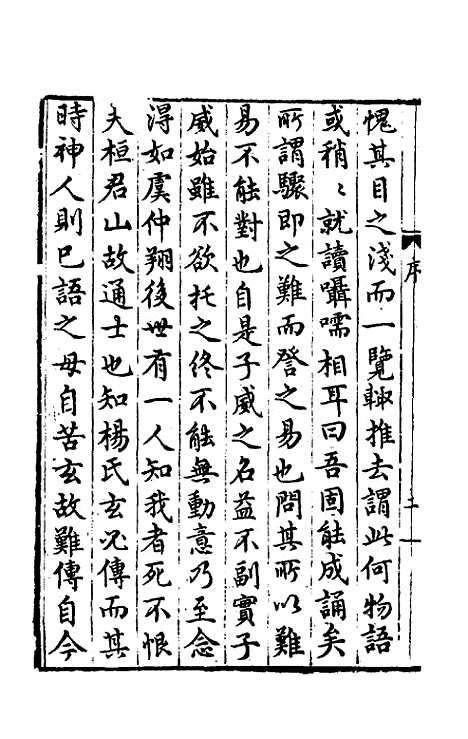 愧其目之淺而一覽輙推去謂此何物語
或稍〻就讀囁嚅相耳曰吾固能成誦矣
所謂驟即之難而詧之易也問其所以難
易不能對也自是子威之名益不副實子
威始雖不欲托之終不能無動意乃至念
得如虞仲翔後世有一人知我者死不恨
夫桓君山故通士也知楊氏玄必傳而其
時神人則已語之毋自苦玄故難傳自今
序